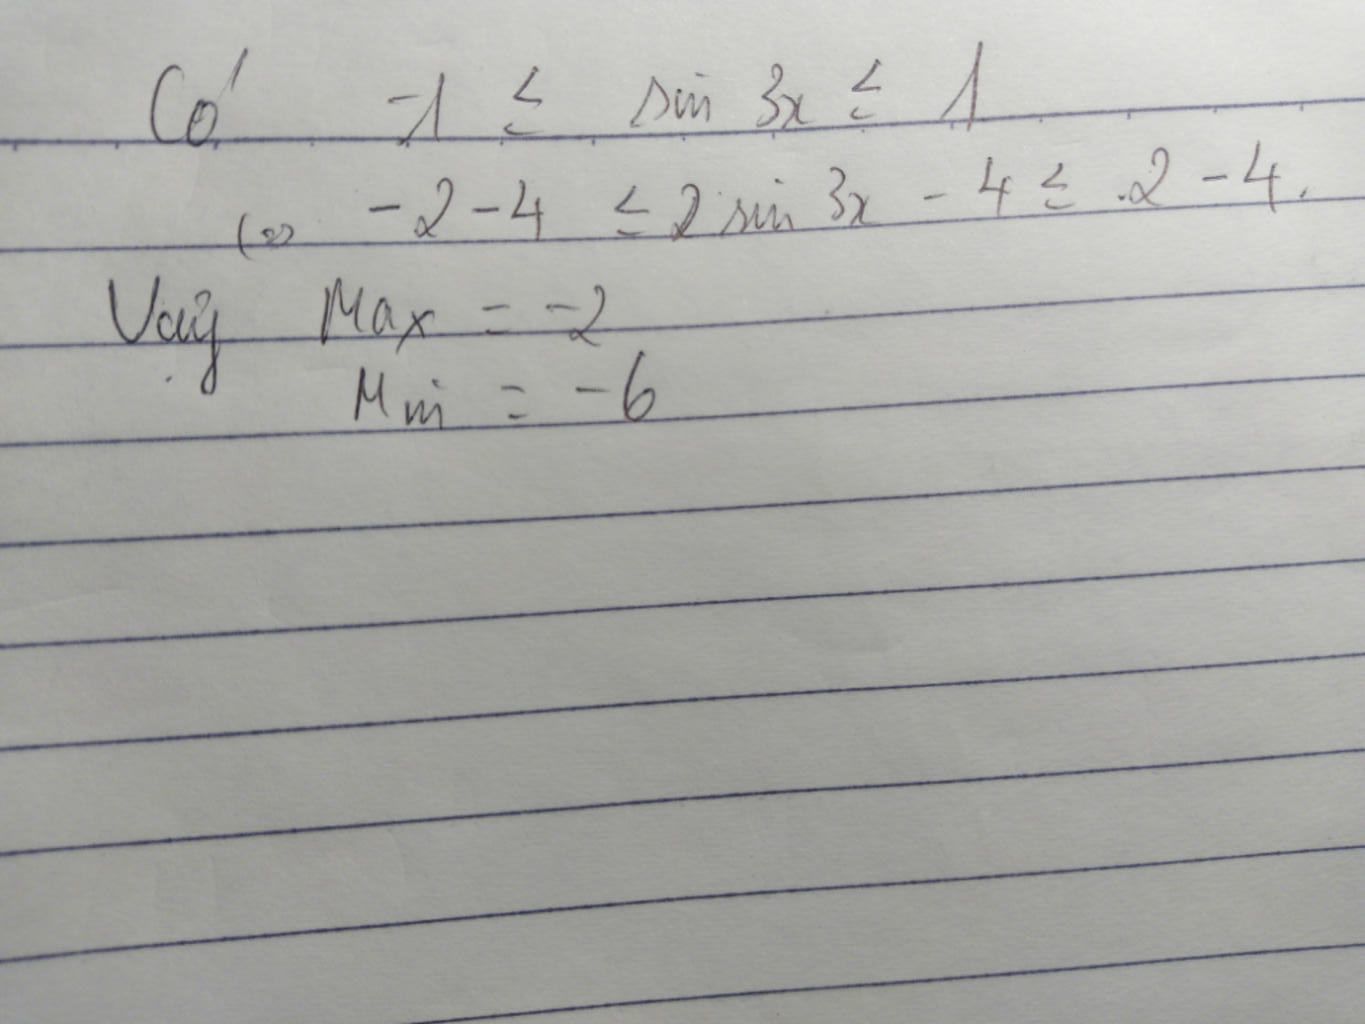 Có -1 ≤ sin 3x ≤ 1
(⇔ -2-4 ≤ 2 sin 3x - 4 ≤ 2-4.
Vậy Max = -2
Min = -6